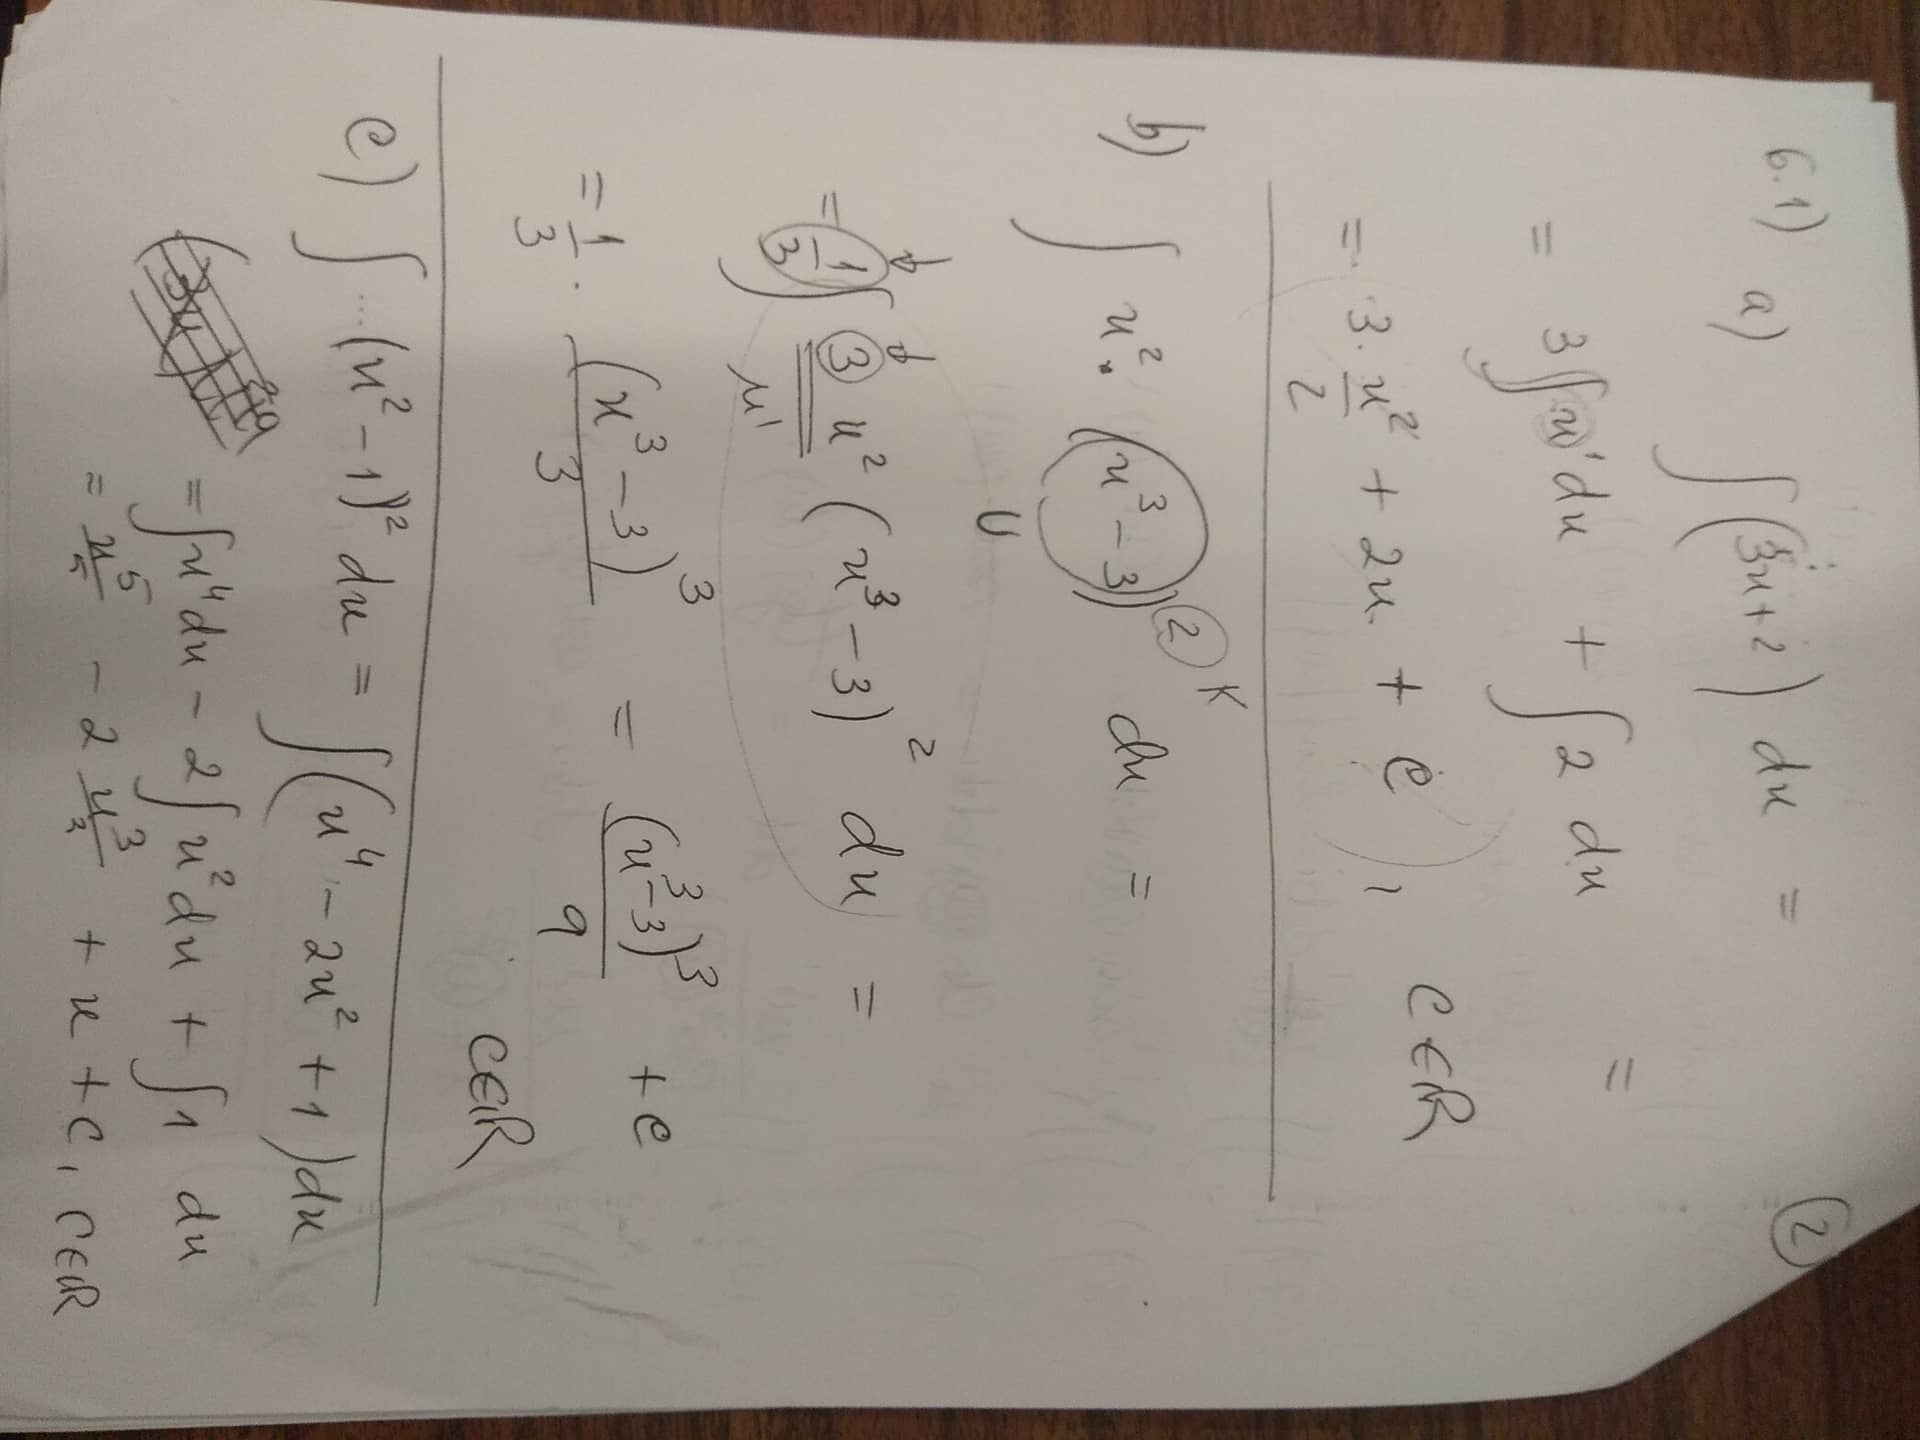 6.1) a) ∫(3x+2) dx = ②
= 3∫x¹dx + ∫2 dx =
= 3. x²/2 + 2x + c, C∈ℝ
b) ∫ x². (x³-3)² dx =
K
U
= 1/3 ∫ 3 x² (x³-3)² dx =
u'
= 1/3 . (x³-3)³/3 = (x³-3)³/9 + c
C∈ℝ
c) ∫ (x²-1)² dx = ∫(x⁴ - 2x² + 1)dx
= ∫x⁴dx - 2∫x²dx + ∫1 dx
= x⁵/5 - 2 x³/3 + x + c, C∈ℝ